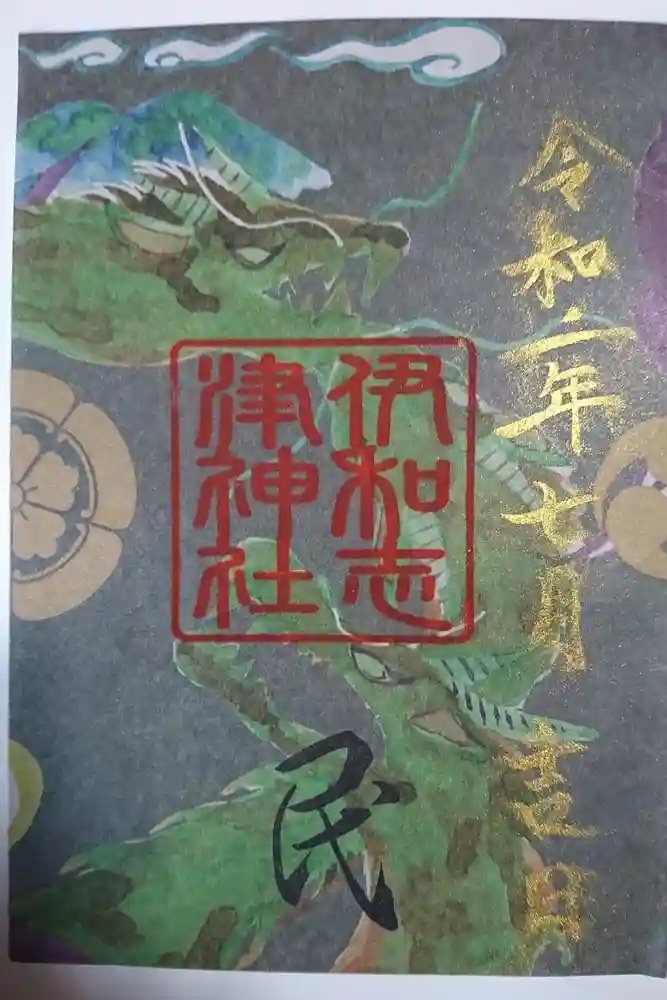 令和二年七月吉日
伊和志
津神社
民